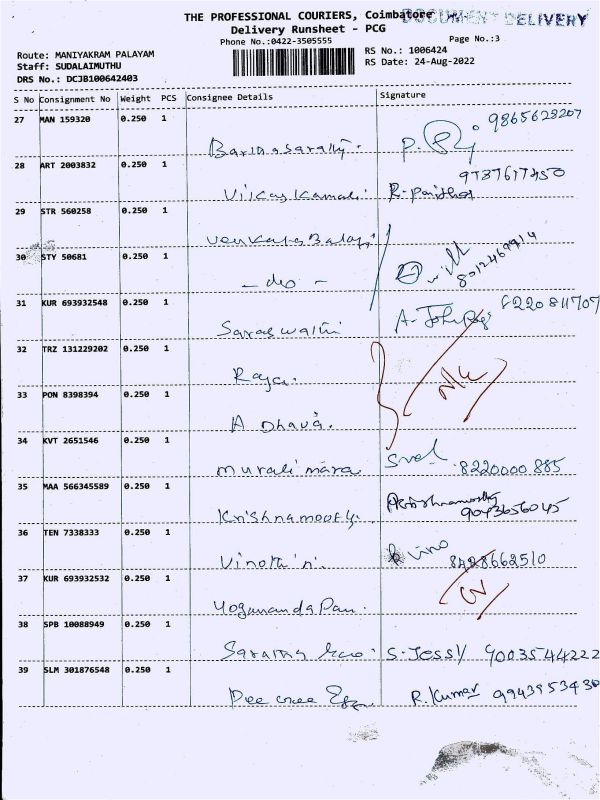 THE PROFESSIONAL COURIERS, Coimbatore
DOCUMENT DELIVERY
Delivery Runsheet - PCG
Phone No.:0422-3505555
Page No.:3
Route: MANIYAKRAM PALAYAM
RS No.: 1006424
Staff: SUDALAIMUTHU
RS Date: 24-Aug-2022
DRS No.: DCJB100642403
S No Consignment No Weight PCS Consignee Details Signature
27 MAN 159320 0.250 1
9865628207
28 ART 2003832 0.250 1
9787617450
29 STR 560258 0.250 1
Venkates Balaji
30 STY 50681 0.250 1
- do -
8012469914
31 KUR 693932548 0.250 1
Saraswathi
32 TRZ 131229202 0.250 1
Raja.
33 PON 8398394 0.250 1
A Dhava.
34 KVT 2651546 0.250 1
murali mara
8220000 885
35 MAA 566345589 0.250 1
Krishnamoorthy. Krishnamoorthy
9043656045
36 TEN 7338333 0.250 1
Vinoth
Vino
8428662510
37 KUR 693932532 0.250 1
Yogananda Pan.
38 SPB 10088949 0.250 1
S. Jessy 9003544222
39 SLM 301876548 0.250 1
R. Kumar 9943953430